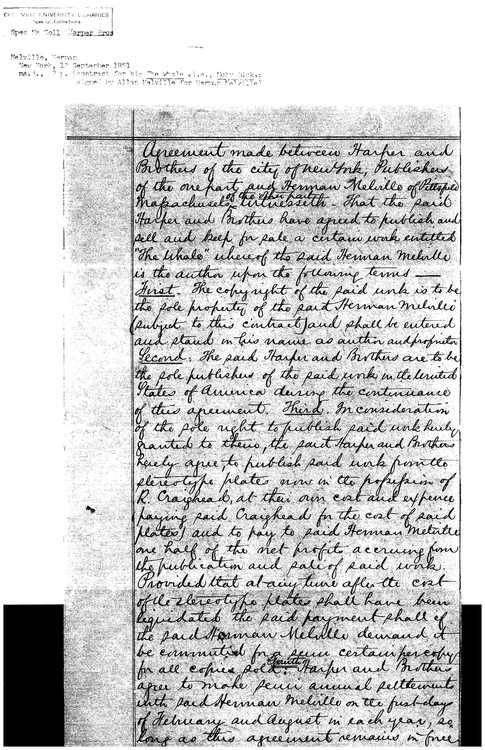 COLUMBIA UNIVERSITY LIBRARIES
Spec Ms Coll Harper Bros
Melville, Herman
New York, 12 September 1851
ms.d., 3 p. (contract for his The Whale, i.e., Moby Dick;
signed by Allan Melville for Herman Melville)
Agreement made between Harper and
Brothers of the city of New York, Publishers
of the one part, and Herman Melville of Pittsfield
of the other part
Massachusetts Witnesseth. That the said
Harper and Brothers have agreed to publish and
sell and keep for sale a certain work entitled
"The Whale" whereof the said Herman Melville
is the author upon the following terms —
First. The copyright of the said work is to be
the sole property of the said Herman Melville
(subject to this contract) and shall be entered
and stand in his name as author and proprietor
Second. The said Harper and Brothers are to be
the sole publishers of the said work in the United
States of America during the continuance
of this agreement. Third. In consideration
of the sole right to publish said work hereby
granted to them, the said Harper and Brothers
hereby agree to publish said work from the
stereotype plates now in the possession of
R. Craighead, at their own cost and expense
paying said Craighead for the cost of said
plates) and to pay to said Herman Melville
one half of the net profits accruing from
the publication and sale of said work.
Provided that at any time after the cost
of the stereotype plates shall have been
liquidated the said payment shall if
the said Herman Melville demand it
be commuted for a sum certain per copy
for all copies sold. Fourth. Harper and Brothers
agree to make semi annual settlements
with said Herman Melville on the first days
of February and August in each year, so
long as this agreement remains in force